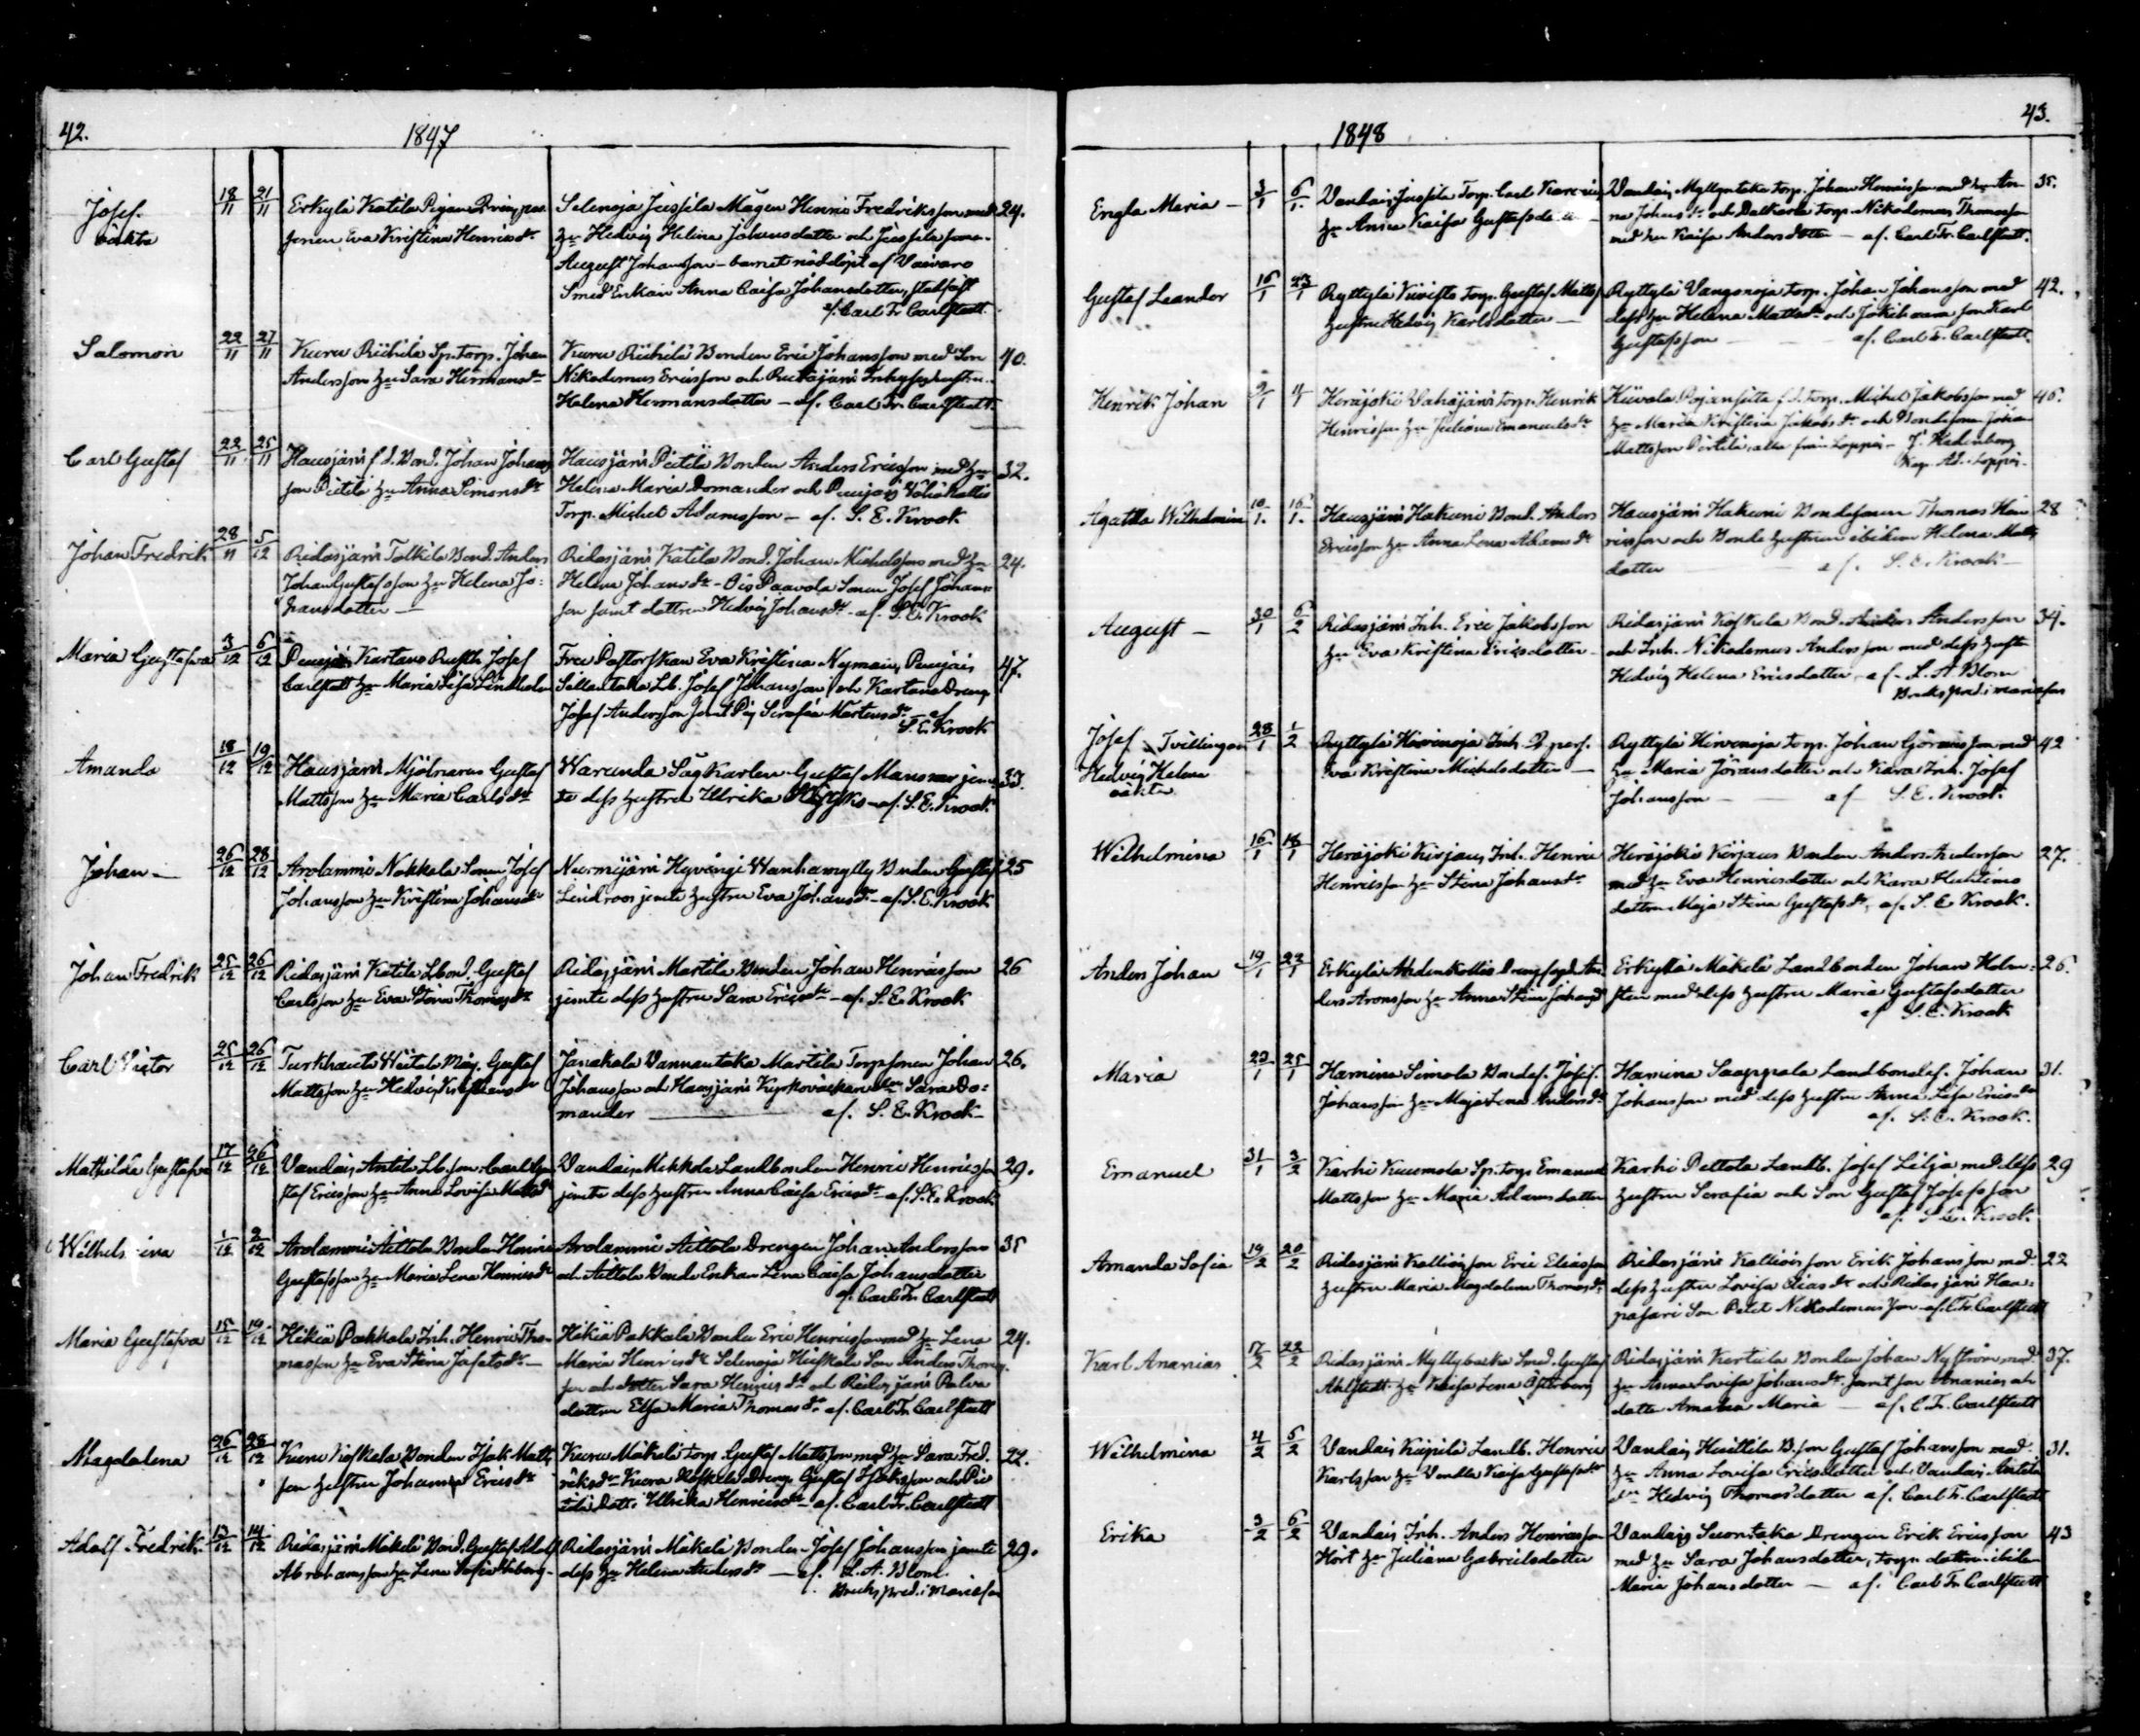 42.
1847
Josef.
oäkta
18/11 21/11
Erkylä Katila Pigan Qvinspers
sonen Eva Kristina Henricsdr
Selenoja Jussila Mågen Henric Fredriksson med
hu Hedvig Helena Johansdotter och Jussila sonen
August Johansson – barnet nöddöpt af Vaivaro
Smed Enkan Anna Caisa Johansdotter, stadfäst
af Carl Fr Carlstedt
24.
Salomon
22/11 27/11
Kuru Riihilä Sp. torp. Johan
Andersson hu Sara Hermansdr
Kuru Riihilä Bonden Eric Johansson med Son
Nikodemus Ericsson och Ridasjärvi Inhyses hustru
Helena Hermansdotter – af. Carl Fr. Carlstedt
40.
Carl Gustaf
22/11 25/11
Hausjärvi f.d. Bond. Johan Johans
son Pietilä hu Anna Simonsdr
Hausjärvi Pietilä Bonden Anders Ericsson med hu
Helena Maria Domander och Punjois
Torp. Michel Adamsson – af. S. E. Krook
32.
Johan Fredrik
28/11 5/12
Ridasjärvi Tolkila Bond. Anders
Johan Gustafsson hu Helena Jo-
hansdotter –
Ridasjärvi Katila Bond. Johan Michelsson med hu
Helena Johansdr – Ois Paavola Sonen Josef Johans-
son samt dottren Hedvig Johansdr – af S. E. Krook
24.
Maria Gustafva
3/12 6/12
Punjois Kartano Rusth. Josef
Carlstedt hu Maria Lisa Lindholm
Fru Pastorskan Eva Kristina Nyman, Punjois
Sillantaka Lb. Josef Johansson och Kartano Dreng
Josef Andersson samt Pig Serafia Mårtensdr – af
S. E. Krook
47.
Amanda
18/12 19/12
Hausjärvi Mjölnaren Gustaf
Mattsson hu Maria Carlsdr
Waranda Sågkarlen Gustaf Mansner jem-
te dess hustru Ullrika – af. S. E. Krook
33.
Johan –
26/12 28/12
Arolammi Nokkala Sonen Josef
Johansson hu Kristina Johansdr
Nurmijärvi Hyvinge Wanhamylly Bonden Gustaf
Lindroos jemte hustru Eva Johansdr – af. S. E. Krook
25
Johan Fredrik
25/12 26/12
Ridasjärvi Katila Lbond. Gustaf
Carlsson hu Eva Stina Thomasdr
Ridasjärvi Martila Bonden Johan Henricsson
jemte dess hustru Sara Ericsdr – af. S. E. Krook
26
Carl Victor
25/12 26/12
Turkhauta Wietala Måg. Gustaf
Mattsson hu Hedvig Kristiansdr
Janakala Vanantaka Martila Torpsonen Johan
Johansson och Hausjärvi Sara Do-
mander – af. S. E. Krook –
26.
Mathilda Gustafva
17/12 26/12
Vandais Anttila Lb. son Carl Gu-
staf Ericsson hu Anna Lovisa Mattsdr
Vandais Mikkola Landbonden Henric Henricsson
jemte dess hustru Anna Caisa Ericsdr – af. S. E. Krook
29.
Wilhelmina
1/12 2/12
Arolammi Aittola Bonden Henric
Gustafsson hu Maria Lena Henricsdr
Arolammi Aittola Drengen Johan Andersson
och Aittola Bonde Enkan Lena Caisa Johansdotter
af. Carl Fr. Carlstedt
35
Maria Gustafva
15/12 19/12
Hikiä Pakkala Inh. Henric Tho-
masson hu Eva Stina Josefsdr –
Hikiä Pakkala Bonden Eric Henricsson med hu Lena
Maria Henricsdr Selenoja Hiiskala Son Anders Thomas-
son och dotter Sara Henricsdr och Ridasjärvi Palva
dottren Elsa Maria Thomasdr af. Carl Fr. Carlstedt
24.
Magdalena
26/12 28/12
Kuru Koskela Bonden Isak Matts
son hustru Johanna Ericsdr
Kuru Mäkelä torp. Gustaf Mattsson med hu Sara Fred-
riksdr Kuru Koskela Dreng. Gustaf Isaksson och Pie
tilä Dottr. Ullrika Henricsdr – af. Carl Fr. Carlstedt
22.
Adolf Fredrik
13/12 14/12
Ridasjärvi Mäkelä Bond. Gustaf Adolf
Abrahamsson hu Lena Sofia
Ridasjärvi Mäkelä Bonden Josef Johansson jemte
dess hu Helena Andersdr – af. L. A. Blom.
Bruks pred. i Mariefors
29.
43.
1848
Engla Maria –
3/1 6/1.
Vandais Jussila Torp. Carl
hu Anna Kaisa Gustafsdotter –
Vandais Myllyntaka torp. Johan Henricsson med hu An-
na Johansdr och Dalkarla torp. Nikodemus Thomasson
med hu Kaisa Andersdotter – af. Carl Fr. Carlstedt.
35.
Gustaf Leander
16/1 23/1
Ryttylä Kivistö torp. Gustaf Matts
hustru Hedvig Karlsdotter –
Ryttylä Vangonoja torp. Johan Johansson med
dess hu Helena Mattsdr och son Karl
Gustafsson – af. Carl Fr. Carlstedt.
42.
Henrik Johan
9/1 11/1
Herajoki Vahäjärvi torp. Henrik
Henricsson hu Juliana Emanuelsdr
Hiivola f.d. torp. Michel Jakobsson med
hu Maria Kristina Jakobsdr och Bondesonen Johan
Mattsson Pertilä, alla från Loppis – J. Hedenborg
Kap. Ad. Loppis.
46.
Agatha Wilhelmina
10/1. 16/1.
Hausjärvi Hakuni Bond. Anders
Ericsson hu Anna Lena Adamsdr
Hausjärvi Hakuni Bondesonen Thomas Hen-
ricsson och Bonde hustrun ibidem Helena Matts
dotter – af. S. E. Krook –
28
August –
30/1 6/2
Ridasjärvi Inh. Eric Jakobsson
hu Eva Kristina Ericsdotter –
Ridasjärvi Koskela Bond. Anders Andersson
och Inh. Nikodemus Andersson med dess hustru
Hedvig Helena Ericsdotter – af – L. A. Blom
Bruks pred. i Mariefors
34.
Josef } Tvillingar
Hedvig Helena
oäkta
28/1 1/2
Ryttylä Hirvinoja Inh. Q. pers.
Eva Kristina Michelsdotter –
Ryttylä Hirvenoja torp. Johan Göransson med
hu Maria Jöransdotter och Kara Inh. Josef
Johansson – af S. E. Krook.
42
Wilhelmina
16/1 18/1
Herajoki Kirjaus Inh. Henric
Henricsson hu Stina Johansdr
Herajoki Kirjaus Bonden Anders Andersson
med hu Eva Henricsdotter och Kara Huhtimo
dottren Maja Stina Gustafsdr, af. S. E Krook.
27.
Anders Johan
19/1 23/1
Erkylä Ahdenkallio Drengsgd. An-
ders Aronsson hu Anna Stina Johansdr
Erkylä Mäkelä Landbonden Johan Holm-
sten med dess hustru Maria Gustafsdotter
af S. E. Krook
26.
Maria
23/1 25/1
Hamina Simola Bondes. Josef.
Johansson hu Maja Lena Andersdr
Hamina Saappala Landbondes. Johan
Johansson med dess hustru Anna Lisa Ericsdr
af. S. E. Krook.
31.
Emanuel
31/1 3/2
Karhi Kuumola Sp. torp. Emanuel
Mattsson hu Maria Adamsdotter
Karhi Pettola Landb. Josef Lilja med dess
hustru Serafia och Son Gustaf Josefsson
af. S. E. Krook.
29
Amanda Sofia
19/2 20/2
Ridasjärvi Kallioisson Eric Eliasson
hustru Maria Magdalena Thomasdr
Ridasjärvi Kallioisson Erik Johansson med
dess hustru Lovisa Eliasdr och Ridasjärvi Haa-
pasari Son Petet Nikodemusson – af. C. Fr. Carlstedt
22
Karl Ananias
17/2 22/2
Ridasjärvi Myllybacka Smed. Gustaf
Ahlstedt hu Kaisa Lena Österberg
Ridasjärvi Kertula Bonden Johan Nyström med
hu Anna Lovisa Johansdr. samt son Ananias och
dotter Amanda Maria – af. C. F. Carlstedt
37.
Wilhelmina
4/2 5/2
Vandais Kiipilä Landb. Henric
Karlsson hu Vendla Kaisa Gustafsdr
Vandais Huittila B. son Gustaf Johansson med
hu Anna Lovisa Ericsdotter och Vandais Anttila
dr Hedvig Thomasdotter af. Carl Fr. Carlstedt
31.
Erika
3/2 6/2
Vandais Inh. Anders Henricsson
Hört hu Juliana Gabrielsdotter
Vandais Suontaka Drengen Erik Ericsson
med hu Sara Johansdotter, torp. dottren ibidem
Maria Johansdotter – af. Carl Fr. Carlstedt
43